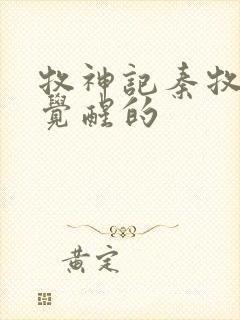 牧神記秦牧
覺醒的
黄定